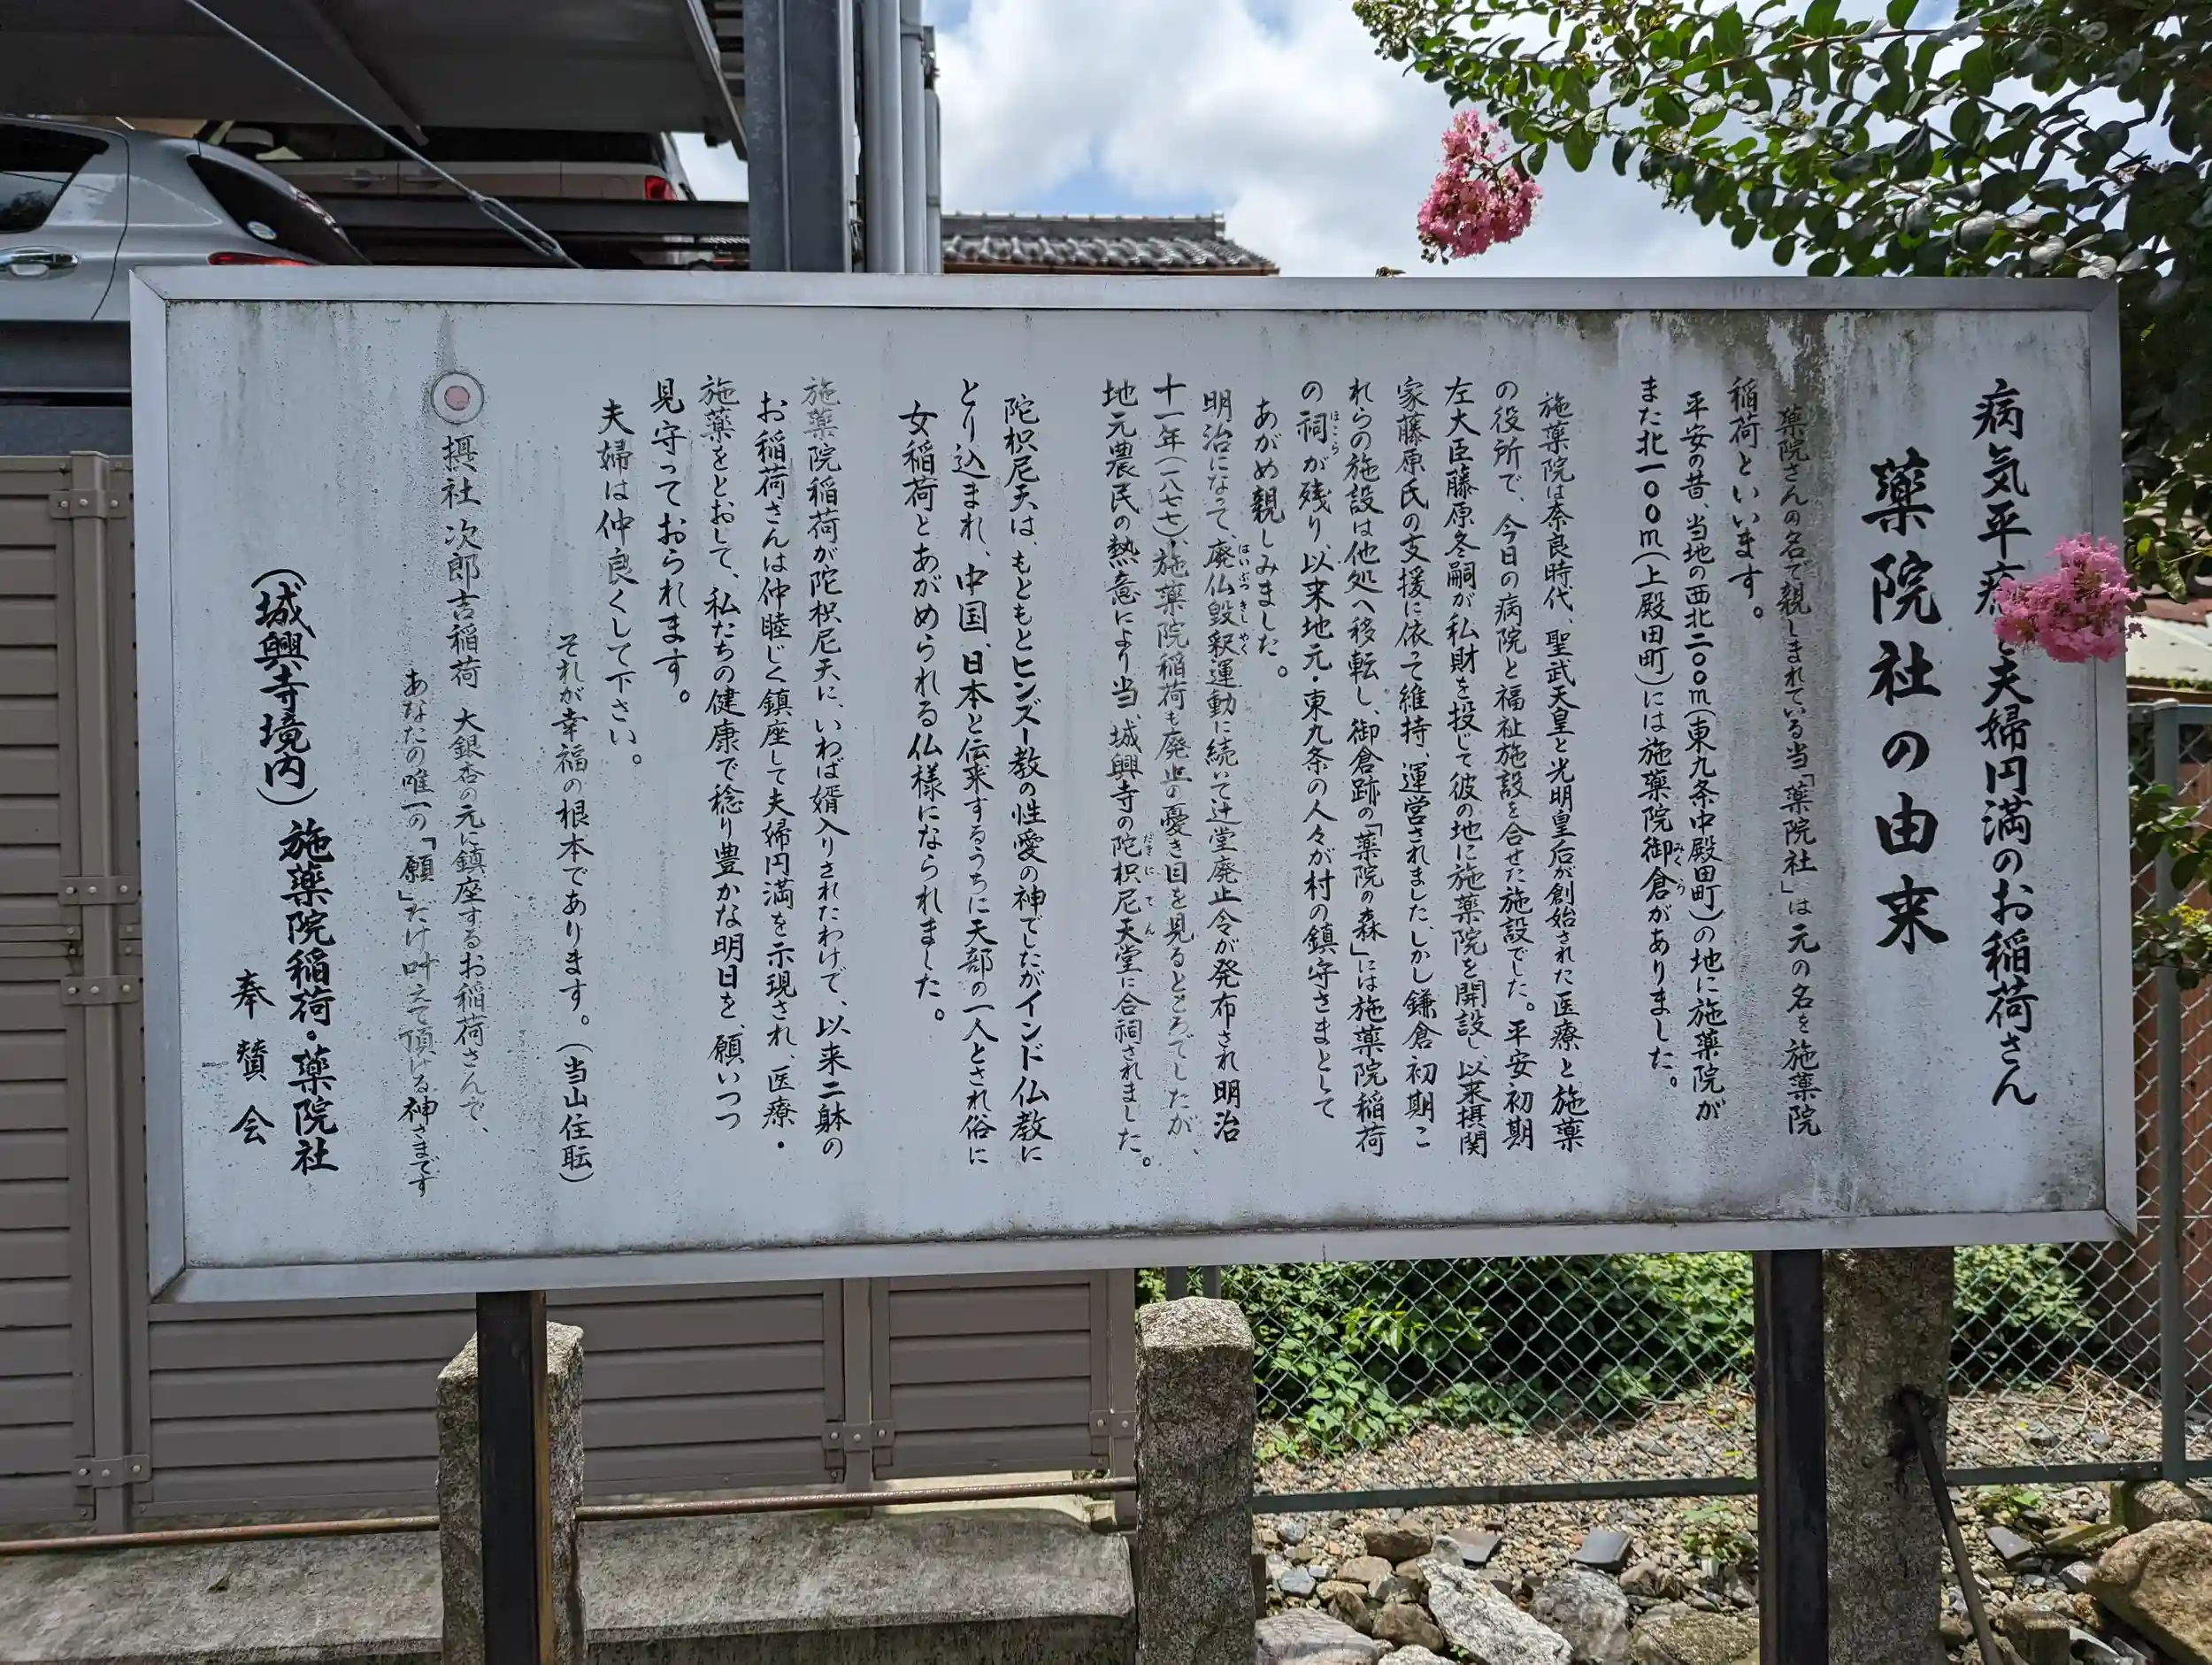 病気平癒と夫婦円満のお稲荷さん
薬院社の由来
薬院さんの名で親しまれている当「薬院社」は元の名を施薬院
稲荷といいます。
平安の昔、当地の西北二〇〇m(東九条中殿田町)の地に施薬院が
また北一〇〇m(上殿田町)には施薬院御倉がありました。
みくら
施薬院は奈良時代、聖武天皇と光明皇后が創始された医療と施薬
の役所で、今日の病院と福祉施設を合せた施設でした。平安初期
左大臣藤原冬嗣が私財を投じて彼の地に施薬院を開設し、以来摂関
家藤原氏の支援に依って維持、運営されました、しかし鎌倉初期こ
れらの施設は他処へ移転し、御倉跡の「薬院の森」には施薬院稲荷
の祠が残り、以来地元・東九条の人々が村の鎮守さまとして
ほこら
あがめ親しみました。
明治になって、廃仏毀釈運動に続いて辻堂廃止令が発布され明治
はいぶつきしやく
十一年(一八七七)、施薬院稲荷も廃止の憂き目を見るところでしたが、
地元農民の熱意により当、城興寺の陀枳尼天堂に合祠されました。
だきにてん
陀枳尼天は、もともとヒンズー教の性愛の神でしたがインド仏教に
とり込まれ、中国、日本と伝来するうちに天部の一人とされ俗に
女稲荷とあがめられる仏様になられました。
施薬院稲荷が陀枳尼天に、いわば婿入りされたわけで、以来二躰の
お稲荷さんは仲睦じく鎮座して夫婦円満を示現され、医療・
施薬をとおして、私たちの健康で稔り豊かな明日を、願いつつ
見守っておられます。
夫婦は仲良くして下さい。
それが幸福の根本であります。(当山住転)
摂社 次郎吉稲荷 大銀杏の元に鎮座するお稲荷さんで、
あなたの唯一の「願」だけ叶えて頂ける神さまです
(城興寺境内)施薬院稲荷・薬院社
奉賛会